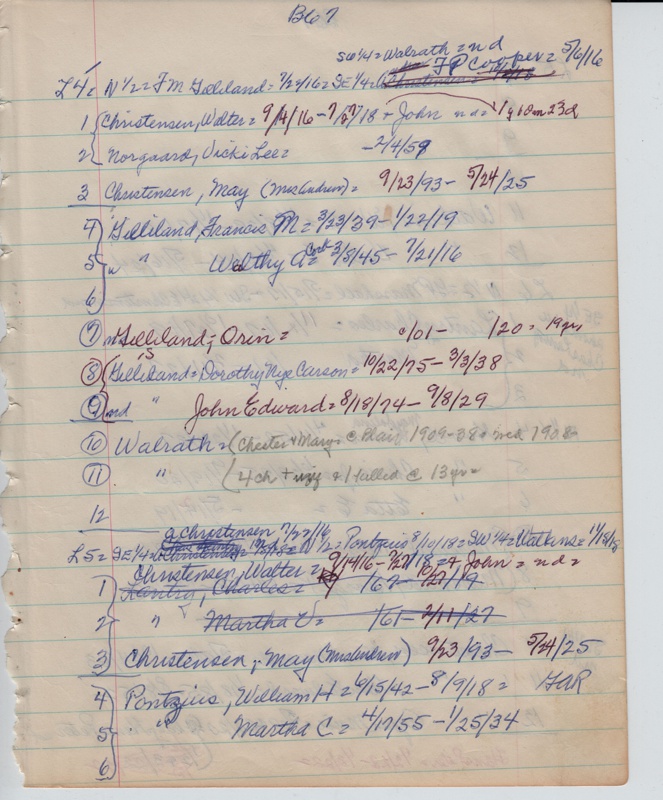 B67
SW 1/4 = Walrath = nd
FP Cooper = 5/6/16
L4 = N 1/2 = FM Gilliland = 7/22/16 = SE 1/4 =
1 Christensen, Walter = 9/14/16 - 7/27/18 + John nd =
2 Norgaard, Vicki Lee = - 2/4/59
3 Christensen, May (Mrs Andrew) = 9/23/93 - 5/24/25
4 Gilliland, Francis M = 3/23/39 - 1/22/19
5 " " Wealthy A = 3/8/45 - 7/21/16
6
7 Gilliland, Orin = /01 - /20 = 19 yrs
8 Gilliland = Dorothy Nye Carson = 10/22/75 - 3/3/38
9 nd " John Edward = 8/18/74 - 9/8/29
10 Walrath = (Chester & Mary @ Blair 1909-38 = 1908
11 " (4 ch + & 1 killed @ 13 yrs =
12
a christensen 7/27/18
L5 = SE 1/4 = N 1/2 = Pontzius 8/10/18 = SW 1/4 = Watkins =
Christensen, Walter = 9/14/16 - 7/27/18 = + John = nd =
1 Lantry, Charles = /67 - /19
2 " Martha V = /61 - 2/11/27
3 Christensen, May (Mrs Andrew) 9/23/93 - 5/24/25
4 Pontzius, William H = 6/15/42 - 8/9/18 = GAR
5 " Martha C. = 4/17/55 - 1/25/34
6